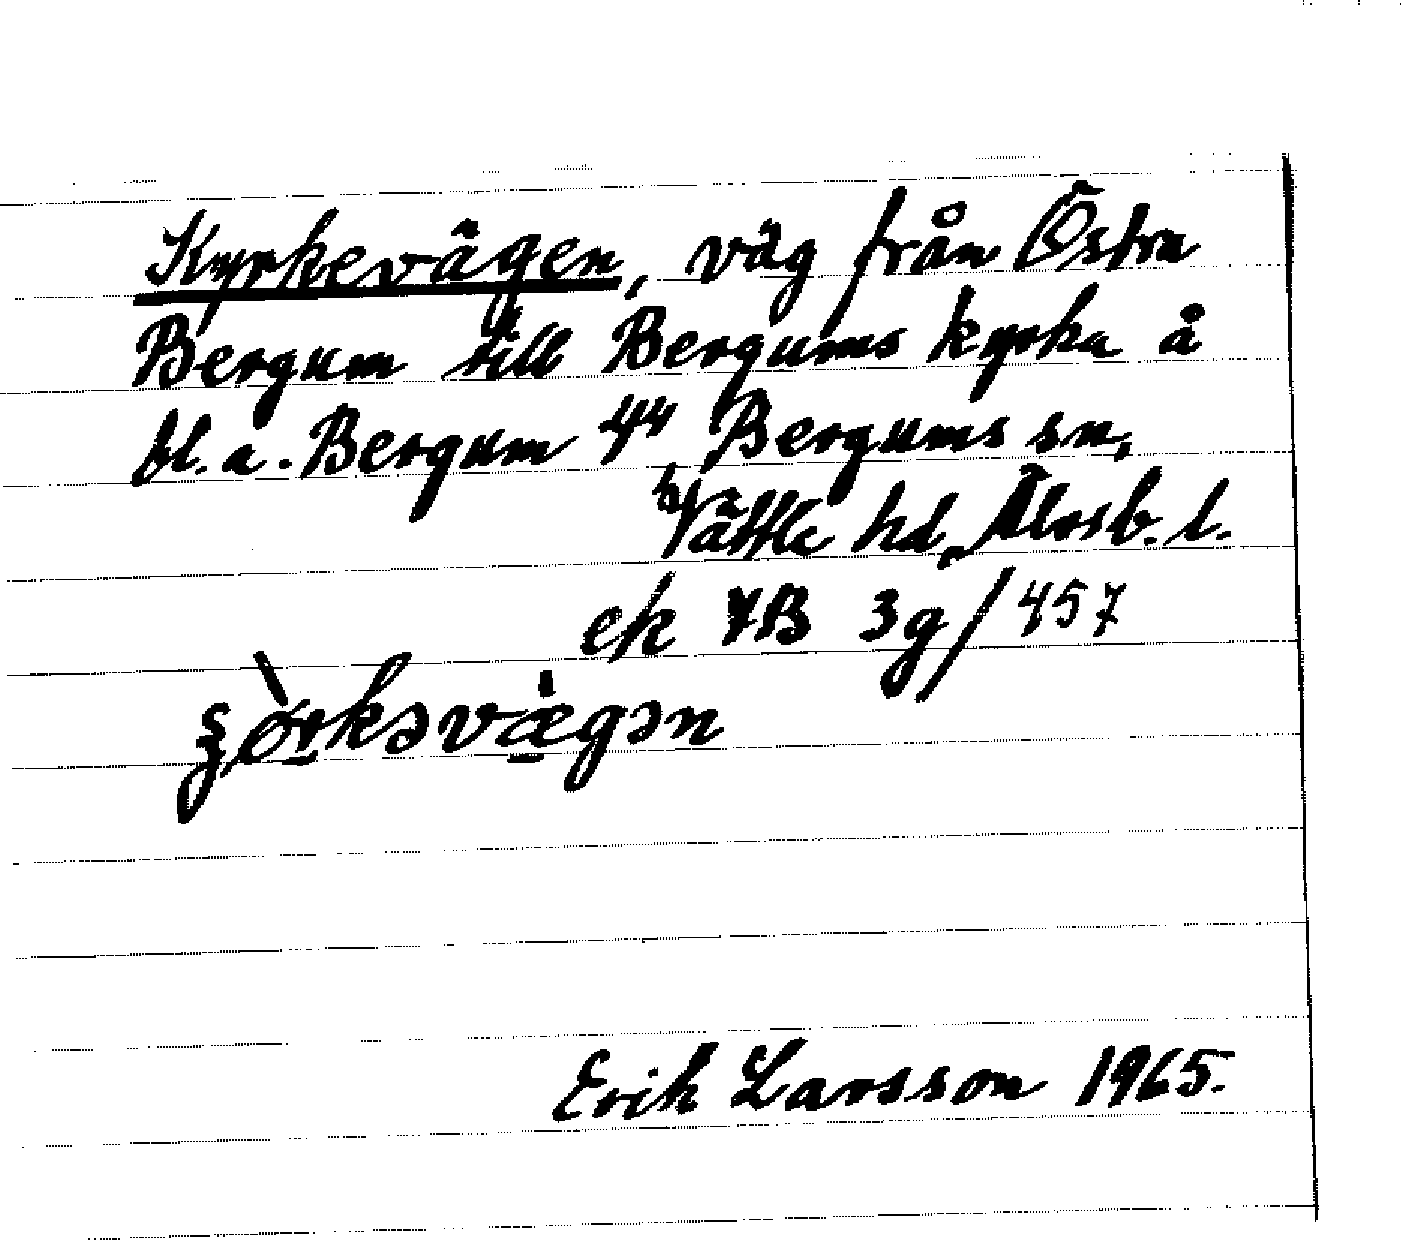 Kyrkevägen, väg från Östra
Bergum till Bergums kyrka å
bl. a. Bergum 4⁴, Bergums sn,
Vättle hd, Älvsb. l.
ek 7B 3g/457
Erik Larsson 1965.